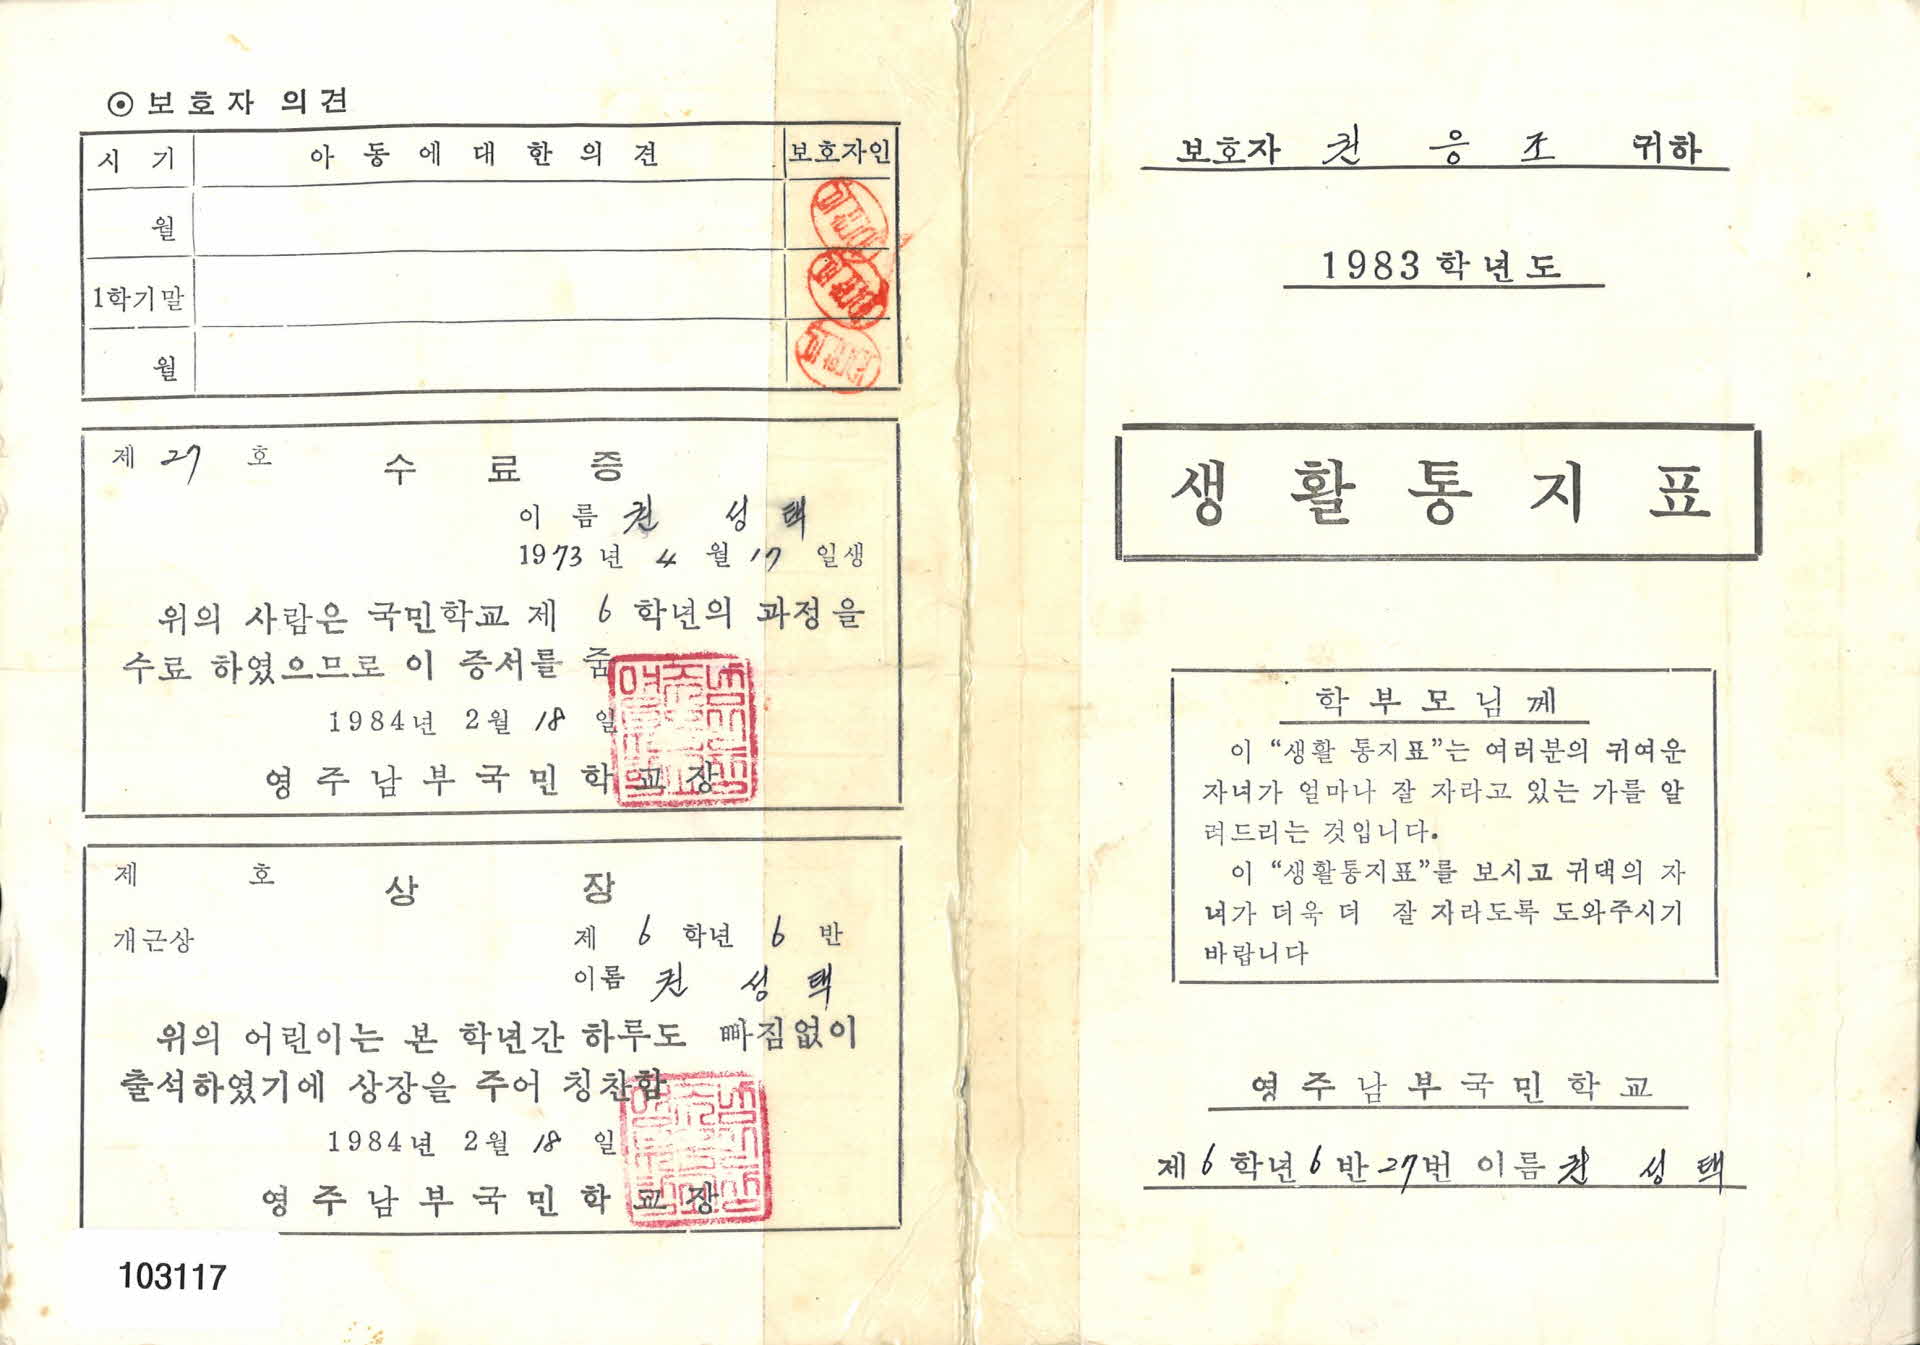 ⊙보호자 의견
시 기 아 동 에 대 한 의 견 보호자인
월
1학기말
월
제 27 호 수 료 증
이 름 권 성 택
1973년 4 월 17 일생
위의 사람은 국민학교 제 6 학년의 과정을
수료 하였으므로 이 증서를 줌
1984년 2월 18 일
영 주 남 부 국 민 학 교 장
제 호 상 장
개근상 제 6 학년 6 반
이름 권 성 택
위의 어린이는 본 학년간 하루도 빠짐없이
출석하였기에 상장을 주어 칭찬함
1984년 2월 18 일
영 주 남 부 국 민 학 교 장
103117
보호자 권 응 조 귀하
1983학년도
생 활 통 지 표
학 부 모 님 께
이 “생활 통지표”는 여러분의 귀여운
자녀가 얼마나 잘 자라고 있는 가를 알
려드리는 것입니다.
이 “생활통지표”를 보시고 귀댁의 자
녀가 더욱 더 잘 자라도록 도와주시기
바랍니다
영 주 남 부 국 민 학 교
제 6 학년 6 반 27번 이름 권 성 택